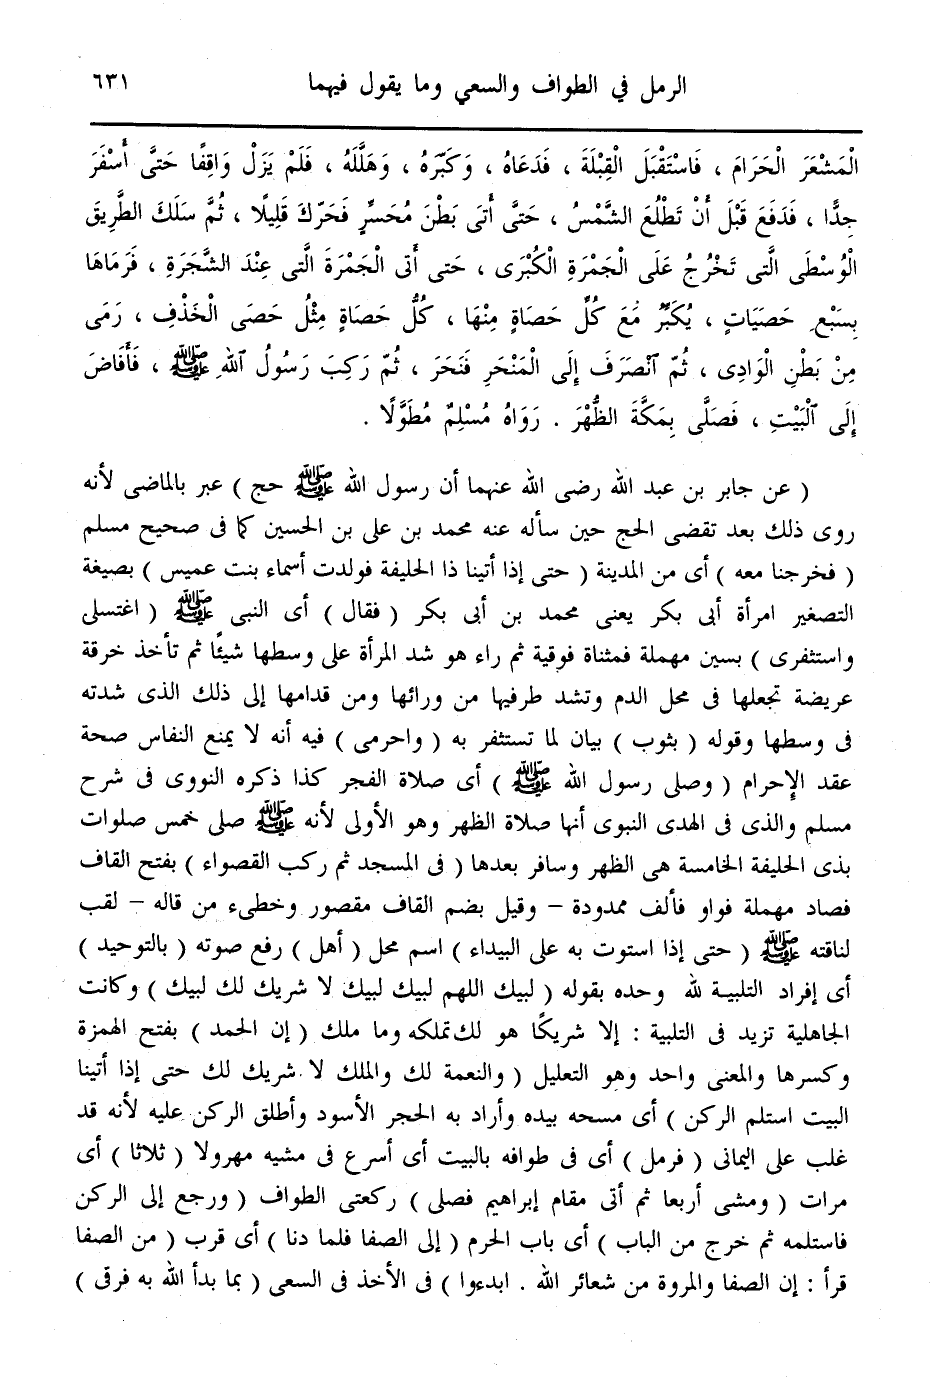 الرمل في الطواف والسعي وما يقول فيهما ٦٣١
الْمَشْعَرَ الْحَرَامَ ، فَاسْتَقْبَلَ الْقِبْلَةَ ، فَدَعَاهُ ، وَكَبَّرَهُ ، وَهَلَّلَهُ ، فَلَمْ يَزَلْ وَاقِفًا حَتَّى أَسْفَرَ
جِدًّا ، فَدَفَعَ قَبْلَ أَنْ تَطْلُعَ الشَّمْسُ ، حَتَّى أَتَى بَطْنَ مُحَسِّرٍ فَحَرَّكَ قَلِيلًا ، ثُمَّ سَلَكَ الطَّرِيقَ
الْوُسْطَى الَّتِى تَخْرُجُ عَلَى الْجَمْرَةِ الْكُبْرَى ، حَتى أَتى الْجَمْرَةَ الَّتِى عِنْدَ الشَّجَرَةِ ، فَرَمَاهَا
بِسَبْعِ حَصَيَاتٍ ، يُكَبِّرُ مَعَ كُلِّ حَصَاةٍ مِنْهَا ، كُلُّ حَصَاةٍ مِثْلُ حَصَى الْخَذْفِ ، رَمَى
مِنْ بَطْنِ الْوَادِى ، ثُمّ ٱنْصَرَفَ إِلَى الْمَنْحَرِ فَنَحَرَ ، ثُمّ رَكِبَ رَسُولُ ٱللهِ ﷺ ، فَأَفَاضَ
إِلَى ٱلْبَيْتِ ، فَصَلَّى بِمَكَّةَ الظُّهْرَ . رَوَاهُ مُسْلِمٌ مُطَوَّلًا .
( عن جابر بن عبد الله رضى الله عنهما أن رسول الله ﷺ حج ) عبر بالماضى لأنه
روى ذلك بعد تقضى الحج حين سأله عنه محمد بن على بن الحسين كما فى صحيح مسلم
( فخرجنا معه ) أى من المدينة ( حتى إذا أتينا ذا الحليفة فولدت أسماء بنت عميس ) بصيغة
التصغير امرأة أبى بكر يعنى محمد بن أبى بكر ( فقال ) أى النبى ﷺ ( اغتسلى
واستثفرى ) بسين مهملة فمثناة فوقية ثم راء هو شد المرأة على وسطها شيئًا ثم تأخذ خرقة
عريضة تجعلها فى محل الدم وتشد طرفيها من ورائها ومن قدامها إلى ذلك الذى شدته
فى وسطها وقوله ( بثوب ) بيان لما تستثفر به ( واحرمى ) فيه أنه لا يمنع النفاس صحة
عقد الإحرام ( وصلى رسول الله ﷺ ) أى صلاة الفجر كذا ذكره النووى فى شرح
مسلم والذى فى الهدى النبوى أنها صلاة الظهر وهو الأولى لأنه ﷺ صلى خمس صلوات
بذى الحليفة الخامسة هى الظهر وسافر بعدها ( فى المسجد ثم ركب القصواء ) بفتح القاف
فصاد مهملة فواو فألف ممدودة – وقيل بضم القاف مقصور وخطىء من قاله – لقب
لناقته ﷺ ( حتى إذا استوت به على البيداء ) اسم محل ( أهل ) رفع صوته ( بالتوحيد )
أى إفراد التلبية لله وحده بقوله ( لبيك اللهم لبيك لبيك لا شريك لك لبيك ) وكانت
الجاهلية تزيد فى التلبية : إلا شريكًا هو لك تملكه وما ملك ( إن الحمد ) بفتح الهمزة
وكسرها والمعنى واحد وهو التعليل ( والنعمة لك والملك لا شريك لك حتى إذا أتينا
البيت استلم الركن ) أى مسحه بيده وأراد به الحجر الأسود وأطلق الركن عليه لأنه قد
غلب على اليمانى ( فرمل ) أى فى طوافه بالبيت أى أسرع فى مشيه مهرولا ( ثلاثا ) أى
مرات ( ومشى أربعا ثم أتى مقام إبراهيم فصلى ) ركعتى الطواف ( ورجع إلى الركن
فاستلمه ثم خرج من الباب ) أى باب الحرم ( إلى الصفا فلما دنا ) أى قرب ( من الصفا
قرأ : إن الصفا والمروة من شعائر الله . ابدءوا ) فى الأخذ فى السعى ( بما بدأ الله به فرقى )